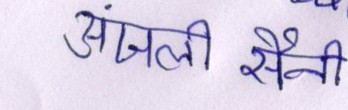 अंजली सैनी